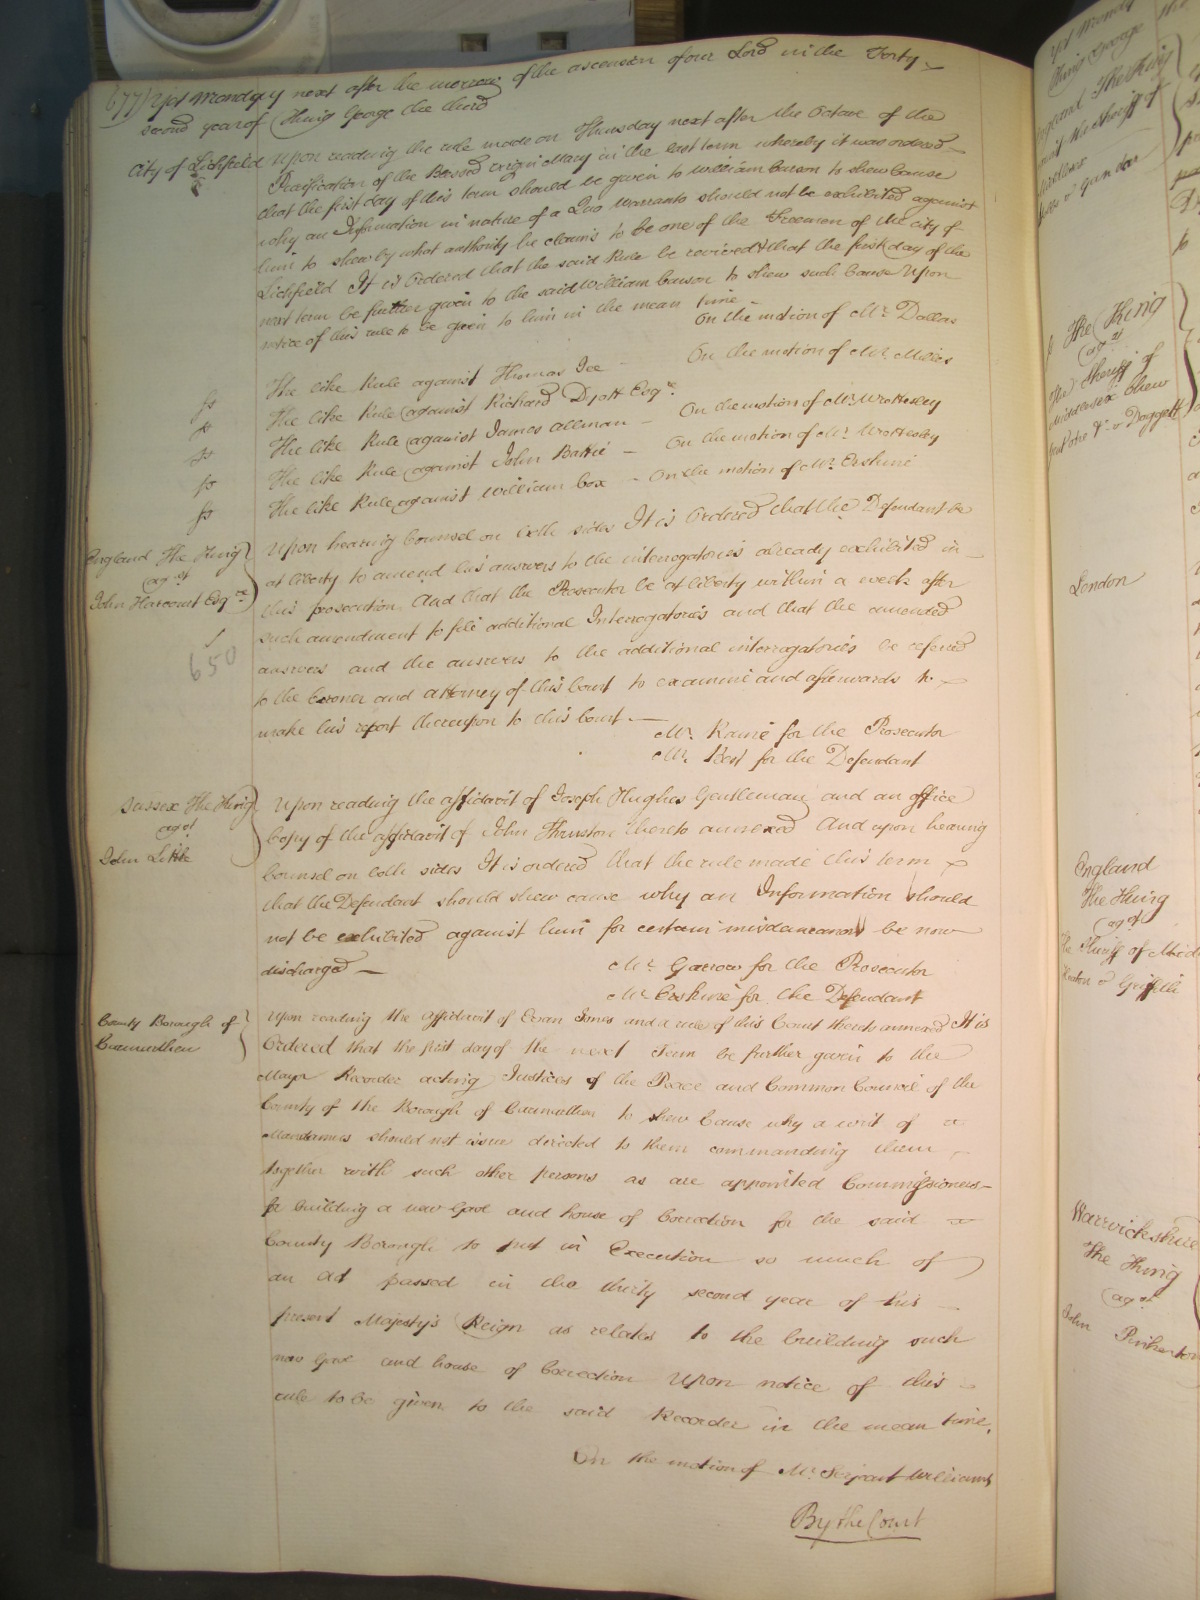 677) Yet Monday next after the morrow of the ascension of our Lord in the Forty
second year of King George the third
City of Lichfield Upon reading the rule made on Thursday next after the Octave of the
Purification of the Blessed virgin Mary in the last term whereby it was ordered
that the first day of this term should be given to William to shew Cause
why an Information in nature of a Quo Warranto should not be exhibited against
him to shew by what authority he claims to be one of the Freemen of the City of
Lichfield It is Ordered that the said Rule be revived & that the first day of the
next term be further given to the said William to shew such Cause Upon
notice of this rule to be given to him in the mean time
On the motion of Mr. Dallas
fo The like Rule against Thomas Gee
On the motion of Mr. Milles
fo The like Rule against Richard Dyott Esqre
fo The like Rule against James allman
On the motion of Mr. Wrottesley
fo The like Rule against John Battie
On the motion of Mr. Wrottesley
fo The like Rule against William Cox
On the motion of Mr. Erskine
England The King
agst
John Harcourt Esqre
650
Upon hearing Counsel on both sides It is Ordered that the Defendant be
at liberty to amend his answers to the interrogatories already exhibited in
this prosecution And that the Prosecutor be at liberty within a week after
such amendment to file additional Interrogatories and that the amended
answers and the answers to the additional interrogatories be referred
to the Coroner and attorney of this Court to examine and afterwards to
make his report thereupon to this Court
Mr. Raine for the Prosecutor
Mr. Best for the Defendant
Sussex The King
agst
John Little
Upon reading the affidavit of Joseph Hughes Gentleman and an office
Copy of the affidavit of John Thurston thereto annexed And upon hearing
Counsel on both sides It is ordered that the rule made this term
that the Defendant should shew cause why an Information should
not be exhibited against him for certain misdemeanors be now
discharged
Mr. Garrow for the Prosecutor
Mr. Erskine for the Defendant
County Borough of
Carmarthen
Upon reading the affidavit of Evan Jones and a rule of this Court thereto annexed It is
Ordered that the first day of the next Term be further given to the
Mayor Recorder acting Justices of the Peace and Common Council of the
County of the Borough of Carmarthen to shew Cause why a writ of a
Mandamus should not issue directed to them commanding them
together with such other persons as are appointed Commissioners
for building a new Gaol and house of Correction for the said
County Borough to put in Execution so much of
an act passed in the thirty second year of this
present Majesty's Reign as relates to the building such
new Gaol and house of Correction Upon notice of this
rule to be given to the said Recorder in the mean time.
On the motion of Mr. Serjeant Williams
By the Court
The King
agst
The Sheriff of
Middlesex
London
England
The King
agst
The Sheriff of
Warwickshire
The King
agst
John